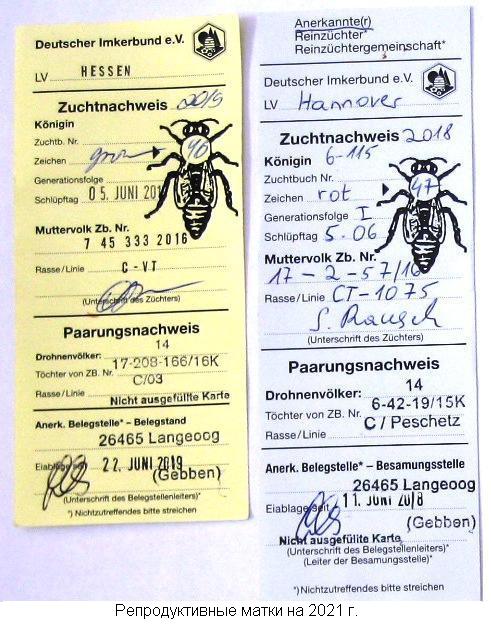 Deutscher Imkerbund e.V.
LV HESSEN
Zuchtnachweis 2019
Königin
Zuchtb. Nr.
Zeichen grün 46
Generationsfolge
Schlüpftag 05. JUNI 201
Muttervolk Zb. Nr.
7 45 333 2016
Rasse/Linie C-VT
(Unterschrift des Züchters)
Paarungsnachweis
14
Drohnenvölker:
17-208-166/16K
Töchter von ZB. Nr.
C/03
Rasse/Linie
Nicht ausgefüllte Karte
Anerk. Belegstelle* – Belegstand
26465 Langeoog
Eiablage seit 22. JUNI 2019
(Gebben)
(Unterschrift des Belegstellenleiters)*
*) Nichtzutreffendes bitte streichen
Anerkannte(r)
Reinzüchter*
Reinzüchtergemeinschaft*
Deutscher Imkerbund e.V.
LV Hannover
Zuchtnachweis 2018
Königin 6-115
Zuchtbuch Nr.
Zeichen rot 47
Generationsfolge I
Schlüpftag 5.06
Muttervolk Zb. Nr.
17-2-57/16
Rasse/Linie CT-1075
S. Rausch
(Unterschrift des Züchters)
Paarungsnachweis
14
Drohnenvölker:
6-42-19/15K
Töchter von ZB. Nr.
C / Peschetz
Rasse/Linie
Anerk. Belegstelle* – Besamungsstelle
26465 Langeoog
Eiablage seit 11. JUNI 2018
(Gebben)
Nicht ausgefüllte Karte
(Unterschrift des Belegstellenleiters)*
(Leiter der Besamungsstelle)*
*) Nichtzutreffendes bitte streichen
Репродуктивные матки на 2021 г.